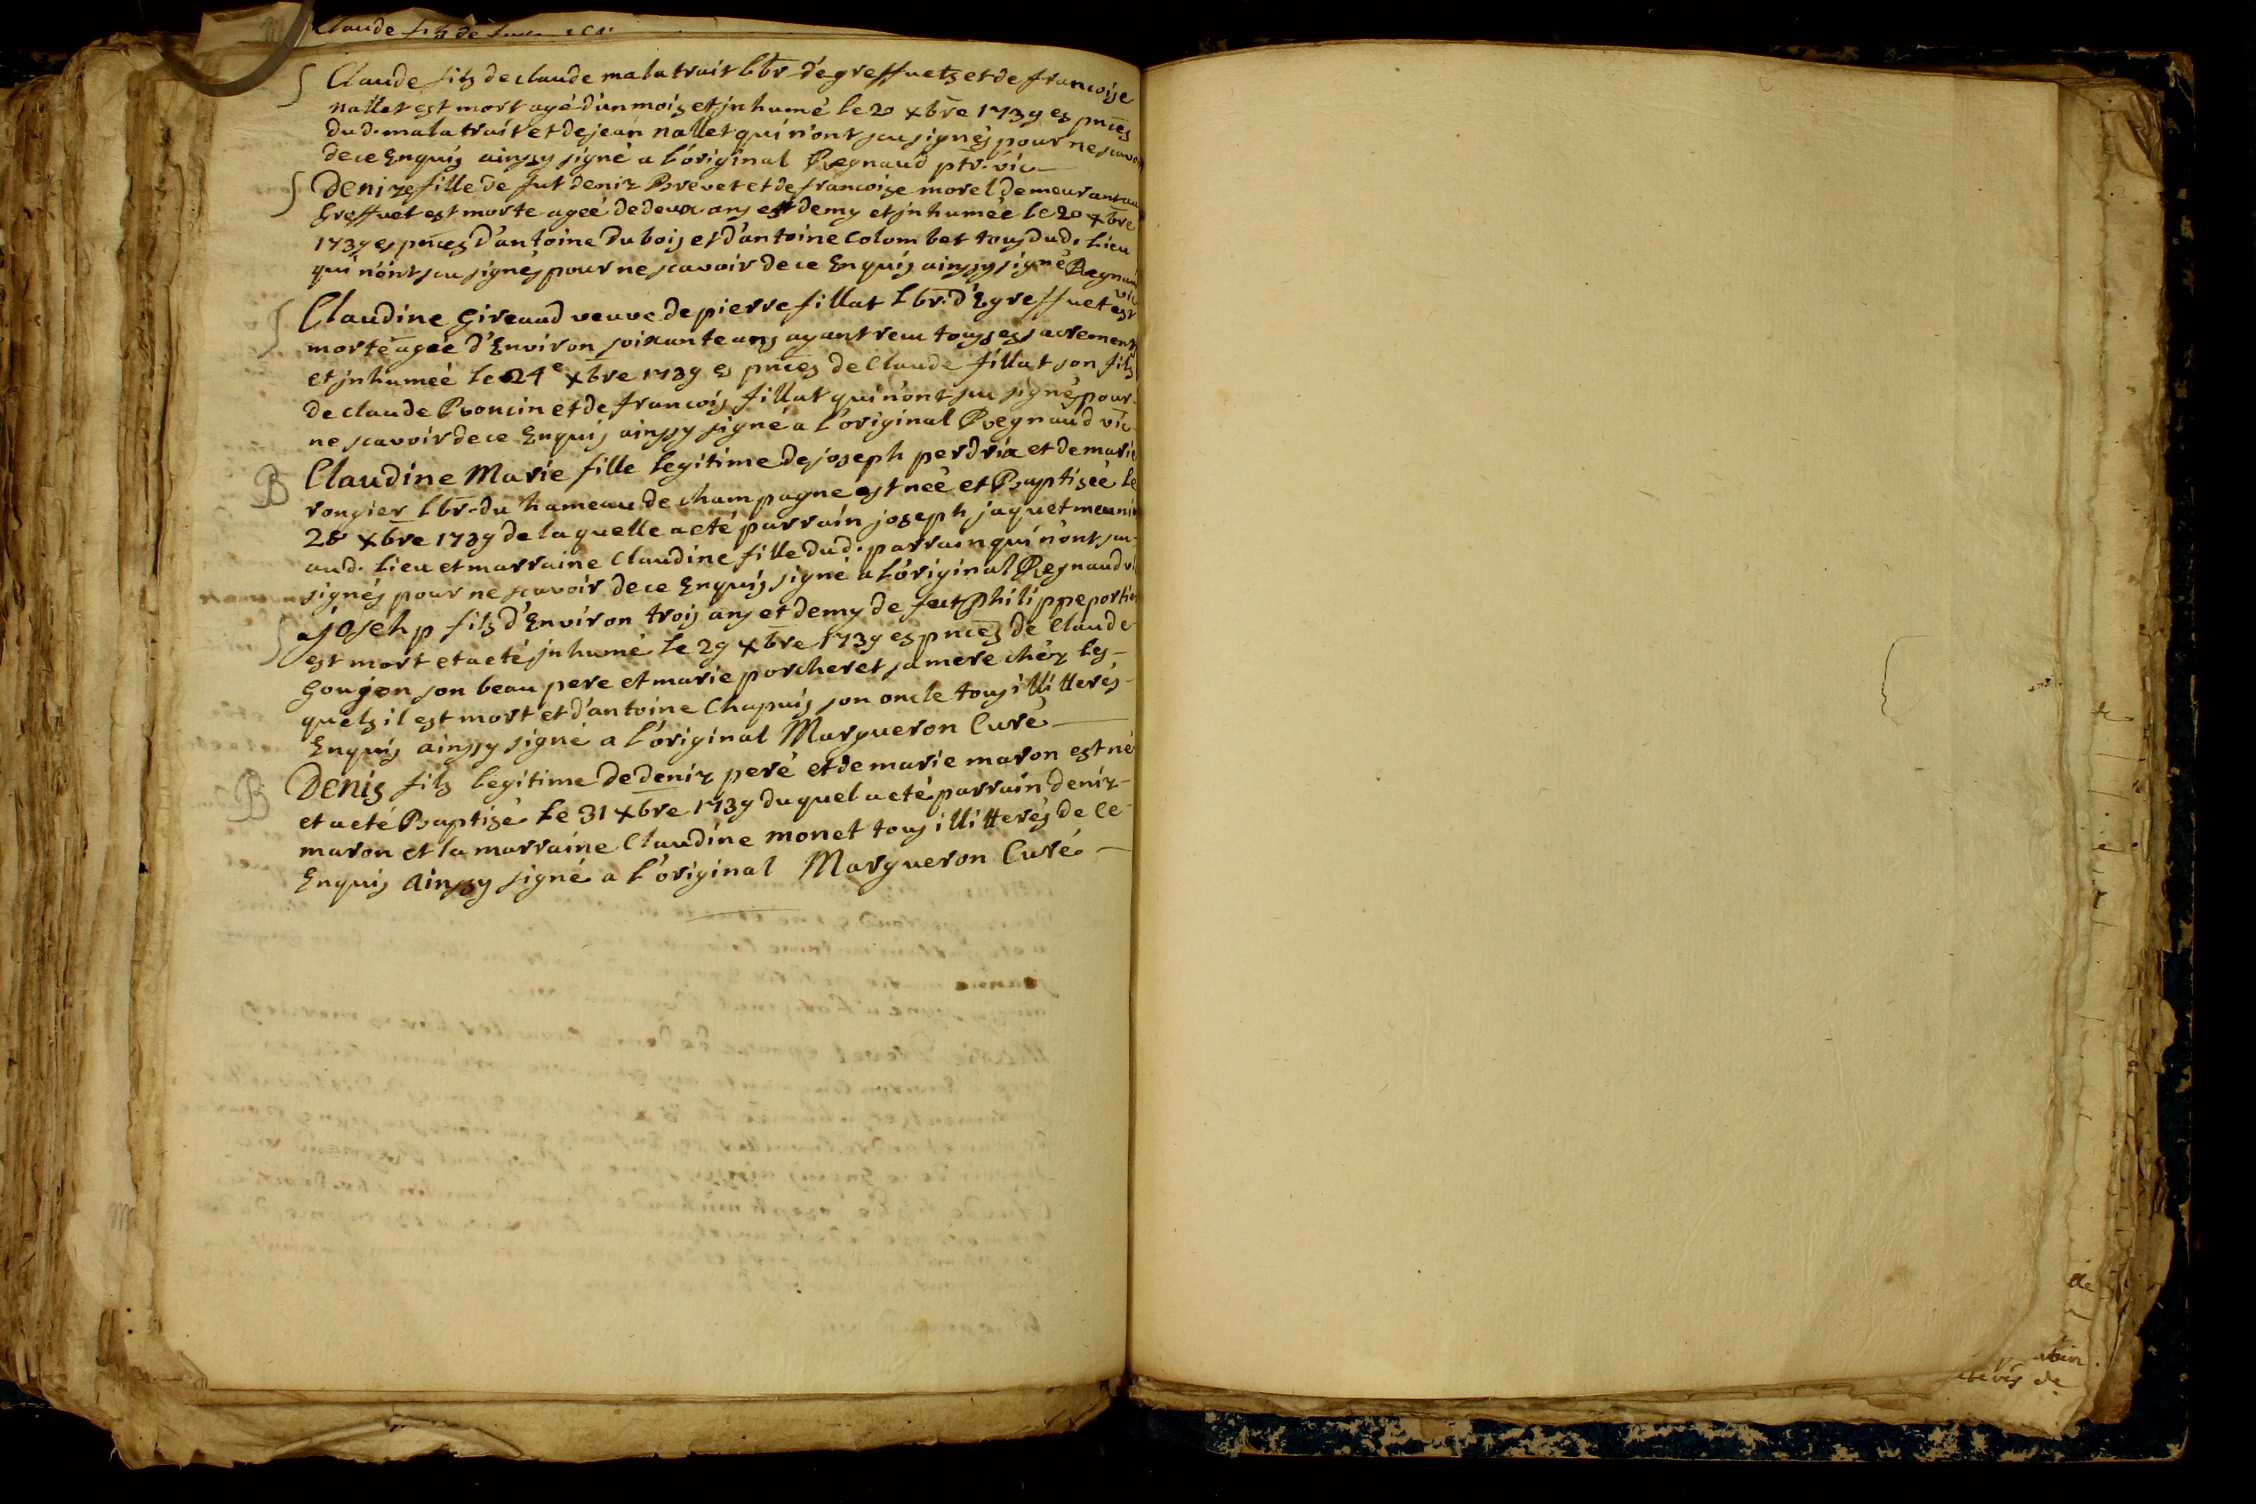 S Claude fils de claude malatrait lbr d'egreffuets et de francoise
nallet est mort agé d'un mois et jnhumé le 20 xbre 1739 es pnces
dud. malatrait et de jean nallet qui n'ont scu signés pour ne scavoir
de ce Enquis ainssy signé a l'original Regnaud ptr. vic
S Denize fille de fut deniz Brevet et de francoise morel demeurant au
Greffuet est morte ageé de deux ans et demy et jnhumée le 20 xbre
1739 es pnces d'antoine Dubois et d'antoine Colombet tous dud. Lieu
qui n'ont scu signés pour ne scavoir de ce Enquis ainssy signé Regnaud
vic
S Claudine Gireaud veuve de pierre fillat lbr. d'Egreffuet est
morte ageé d'Environ soixante ans ayant receu tous ses sacrements
et jnhumeé le 24e xbre 1739 es pnces de Claude fillat son fils
de claude Broncin et de francois fillat qui n'ont scu signés pour
ne scavoir de ce Enquis ainssy signé a l'original Regnaud vic
B Claudine Marie fille legitime de joseph perdrix et de marie
rongier lbr. du hameau de champagne est neé et Baptiseé le
28 xbre 1739 de laquelle a eté parrain joseph jaquet meunier
aud. lieu et marraine Claudine fille dud. parrain qui n'ont scu
signés pour ne scavoir de ce Enquis signé a l'original Regnaud vi
S josehp fils d'Environ trois ans et demy de feut philippe portier
est mort et a eté jnhumé le 29 xbre 1739 es pnces de Claude
Goujon son beau pere et marie porcheret sa mere chéz les-
quels il est mort et d'antoine Chapuis son oncle tous illitterés
Enquis ainssy signé a l'original Margueron Curé
B Denis fils legitime de deniz peré et de marie maron est né
et a eté Baptisé le 31 xbre 1739 duquel a eté parrain deniz
maron et la marraine Claudine monet tous illitterés de ce
Enquis ainssy signé a l'original Margueron Curé